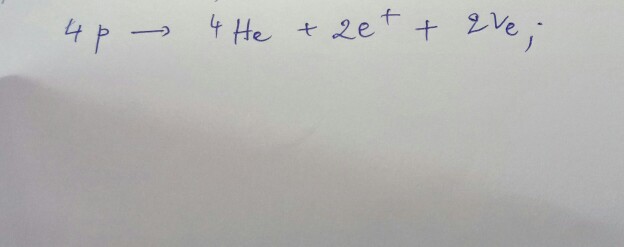 4p → ⁴He + 2e⁺ + 2νe;